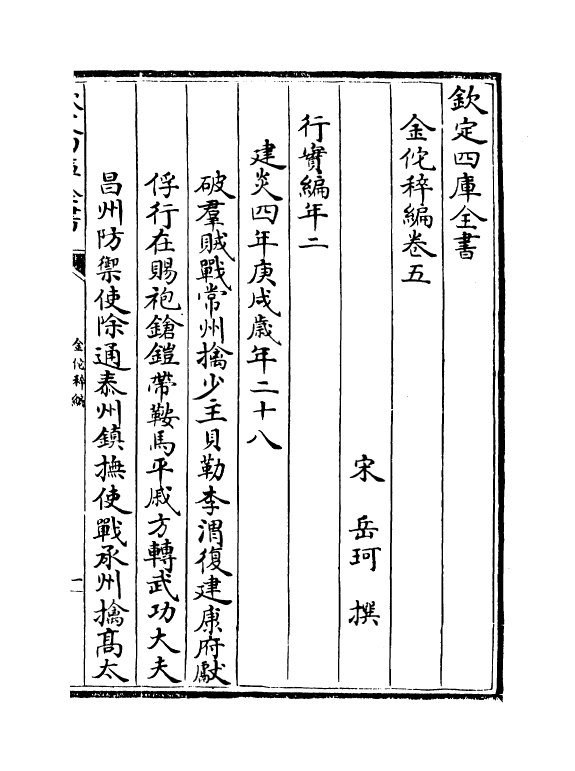 欽定四庫全書
金佗稡編卷五
宋 岳珂 撰
行實編年二
建炎四年庚戌歲年二十八
破羣賊戰常州擒少主貝勒李渭復建康府獻
俘行在賜袍鎗鎧帶鞍馬平戚方轉武功大夫
昌州防禦使除通泰州鎮撫使戰承州擒髙太
欽定四庫全書
金佗稡編
一